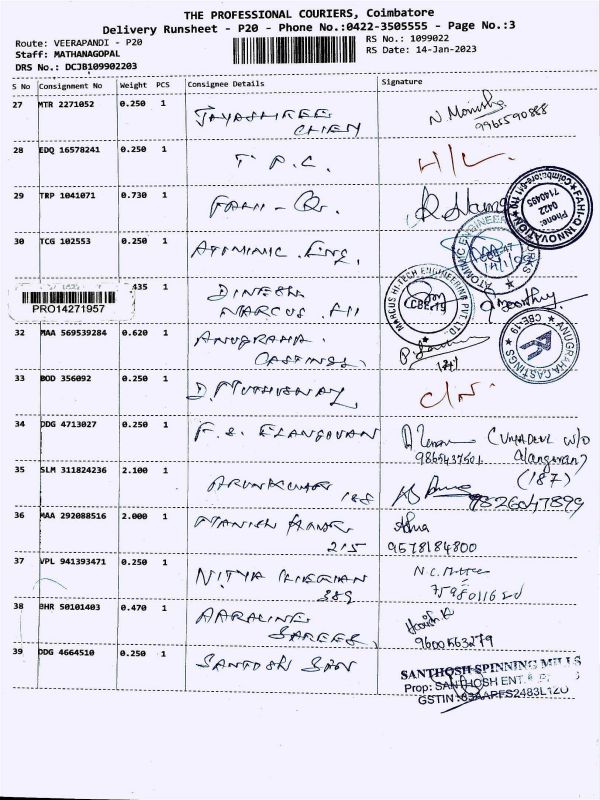 THE PROFESSIONAL COURIERS, Coimbatore
Delivery Runsheet - P20 - Phone No.:0422-3505555 - Page No.:3
Route: VEERAPANDI - P20
RS No.: 1099022
Staff: MATHANAGOPAL
RS Date: 14-Jan-2023
DRS No.: DCJB109902203
S No Consignment No Weight PCS Consignee Details Signature
27 MTR 2271052 0.250 1 JAYASHREE
CHEM
9965590888
28 EDQ 16578241 0.250 1 T. P. C.
29 TRP 1041071 0.730 1
FAHI-Q INNOVATION
Coimbatore-641 110
Phone:
0422
7140495
30 TCG 102553 0.250 1 ATOMINIC Eng.
ATOMINIC ENGINEERING WORKS
435 1 DINESH
MARCUS
PRO14271957
MARCUS HI-TECH ENGINEERING PVT. LTD.
CBE-19
32 MAA 569539284 0.620 1 ANUGRAHA
CASTINGS
ANUGRAHA CASTINGS
CBE-19
33 BOD 356092 0.250 1
34 DDG 4713027 0.250 1 F. S. ELANGOVAN
(UMADEVI W/O
Elangovan)
9865437501
35 SLM 311824236 2.100 1 ARUNKUMAR
188
(187)
9826047899
36 MAA 292088516 2.000 1 MANISH KUMAR
215
9578184800
37 VPL 941393471 0.250 1 NITYA
389
38 BHR 50101403 0.470 1
SAREES
9600563279
39 DDG 4664510 0.250 1 SANTOSH
SANTHOSH SPINNING MILLS
Prop: SANTHOSH ENT.
GSTIN